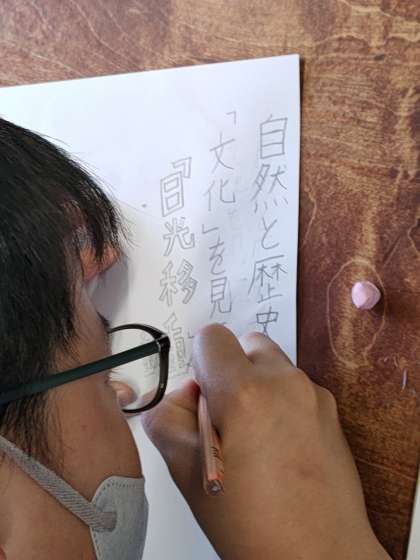 自然と歴史
「文化」を見
『日光移動